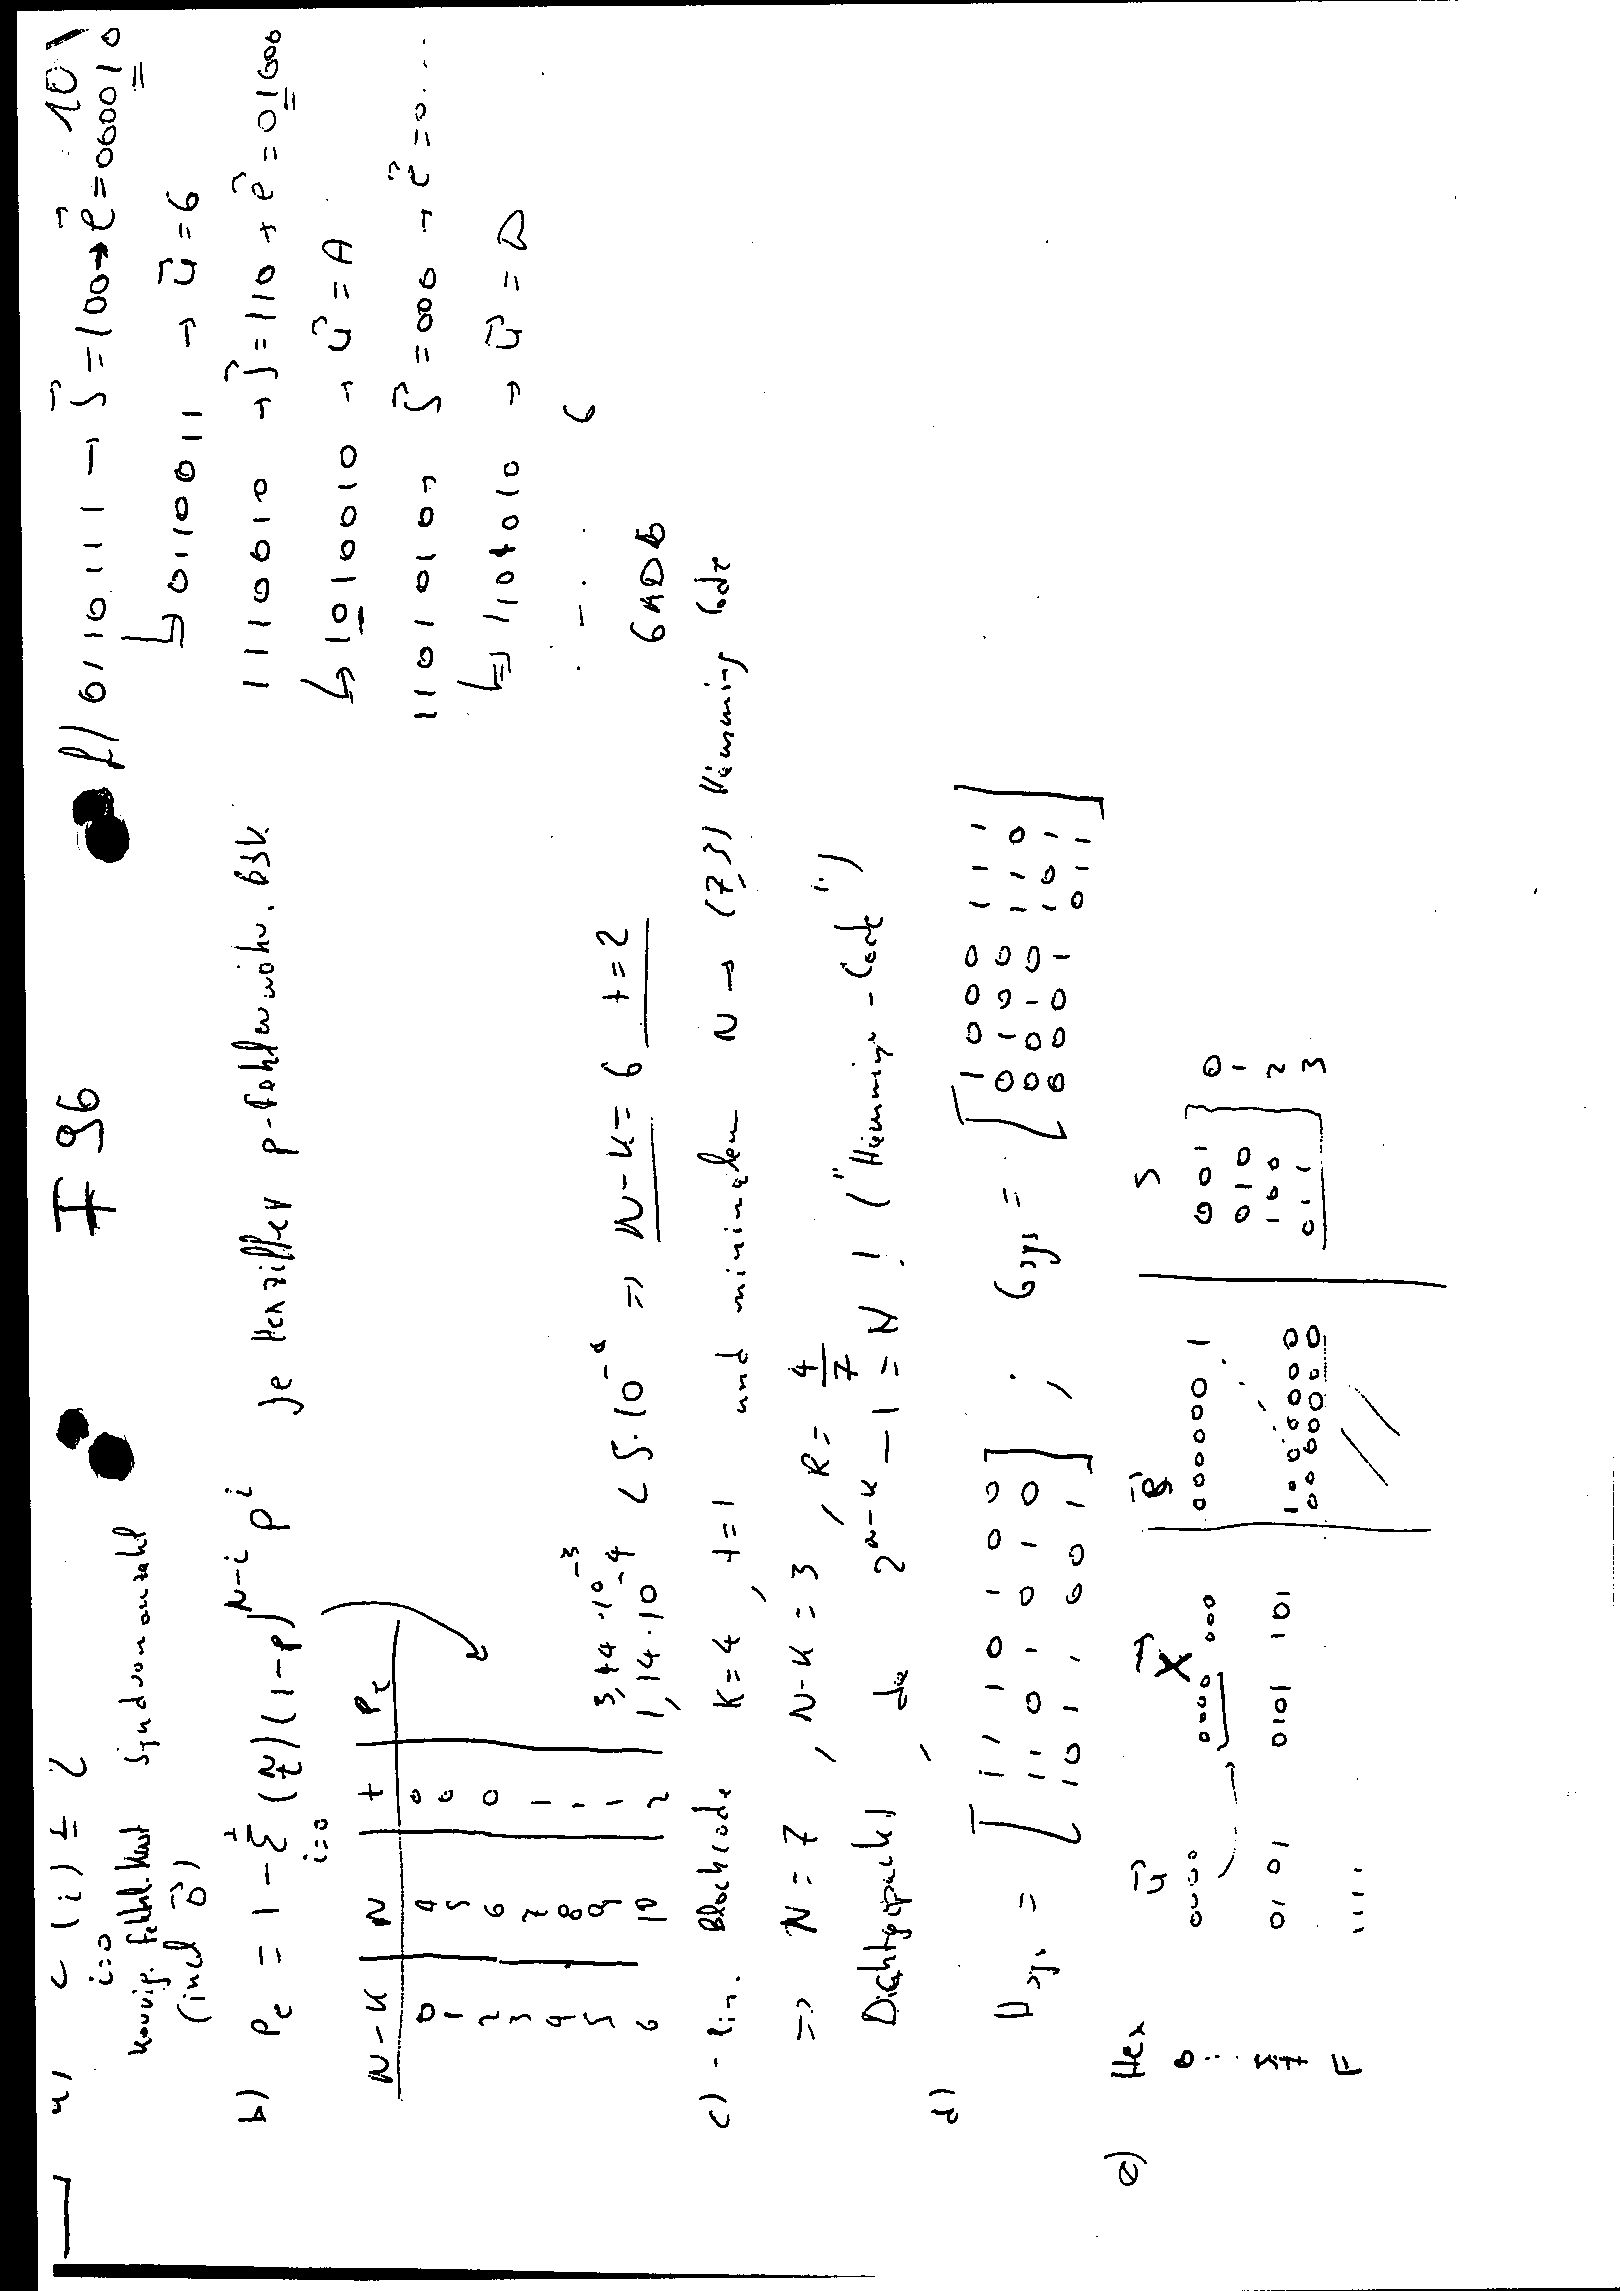 F96
101
a) Σ (i) ≤ 2
i=0
korrig. Fehlerkast Syndromanzahl
(incl 0)
b) Pe = 1 - Σ (N i) (1-p)^N-i p^i je Hexziffer p-Fehlerwahr. BSK
i=0
N-K | N | t | Pe
0 4 0
1 5 0
2 6 0
3 7 1
4 8 1
5 9 1 3,44·10^-3
6 10 2 1,14·10^-4 < 5·10^-4 ⇒ N-K = 6 t=2
c) - lin. Blockcode K=4, t=1 und minimalem N → (7,3) Hamming Code
⇒ N = 7, N-K = 3, R = 4/7
Dichtgepackt, da 2^n-k - 1 = N ! ("Hamming-Code")
d)
Hsys = [ 1 1 1 0 1 0 0 ; Gsys = [ 1 0 0 0 1 1 1
1 1 0 1 0 1 0 0 1 0 0 1 1 0
1 0 1 1 0 0 1 ] 0 0 1 0 1 0 1
0 0 0 1 0 1 1 ]
e) Hex u X e s
0 0000 0000 000 000000 1 001 0
010 1
5 0101 0101 101 100 2
0000000 011 3
F 1111
f) 0110111 → s = 100 → e = 0000100
↳ 0110011 → u = 6
1110010 → s = 110 → e = 0100000
↳ 1010010 → u = A
1101010 → s = 000 → e = 0...
↳ 1101010 → u = D
. - . . 6
6AD6